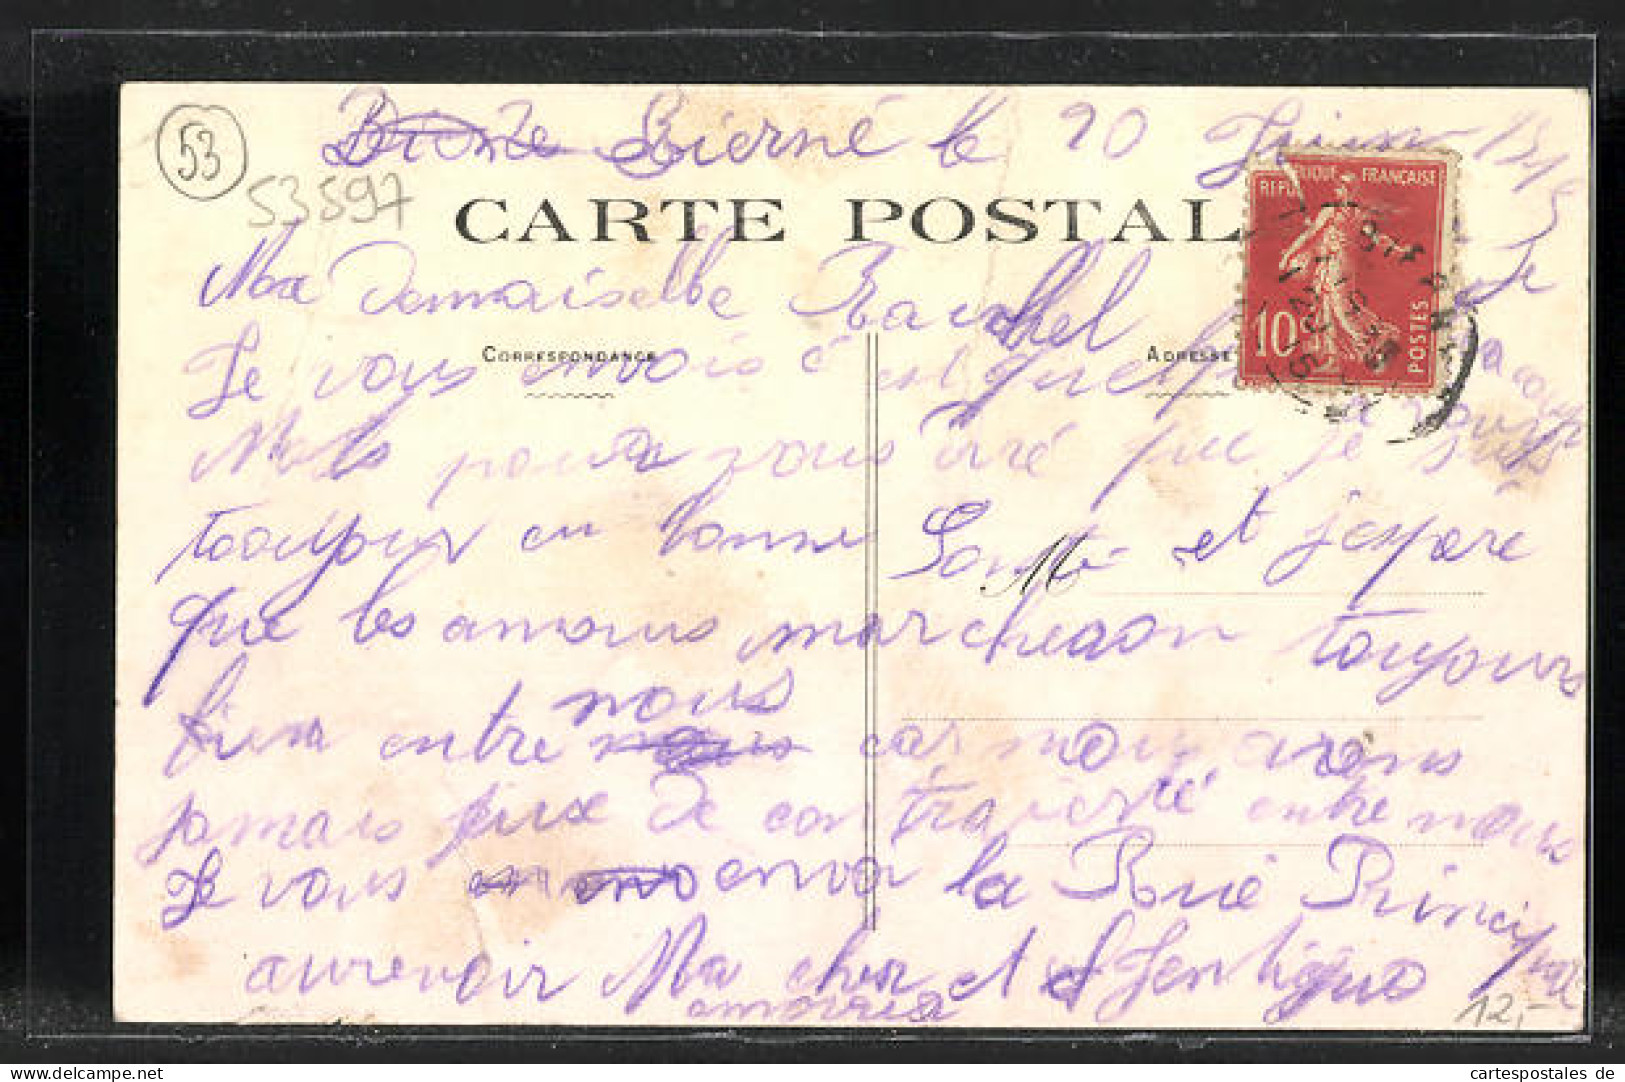 53
53597
Bierné le 20 Juin
CARTE POSTALE
REPUBLIQUE FRANÇAISE
10c
POSTES
Ma Demaiselle Rachel
CORRESPONDANCE
ADRESSE
Je vous envois c est quelq
Mots pour vous que je suis
tooujour en bonne Santé et jespère
M
que les amours marcheron toujours
bien entre nous car nous avons
jamais de contrarierié entre nous
Je vous envoi la Rue Principale
aurevoir Ma cher et Gentigue
amoureia
12,-
www.cartespostales.de